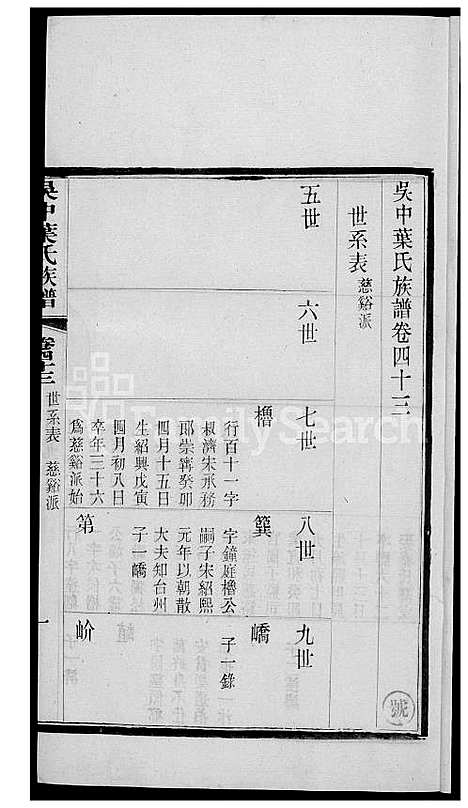 吳中葉氏族譜卷四十三
世系表 慈谿派
五世
六世
七世
八世
九世
櫓
行百十一字
叔濟宋承務
郎崇寧癸卯
四月十五日
生紹興戊寅
四月初八日
卒年三十六
為慈谿派始
簨
字鐘庭櫓公
嗣子宋紹熙
元年以朝散
大夫知台州
子一嶠
嶠
子一錄
第
岎
吳中葉氏族譜
卷四十三
世系表
慈谿派
一
號
FamilySearch